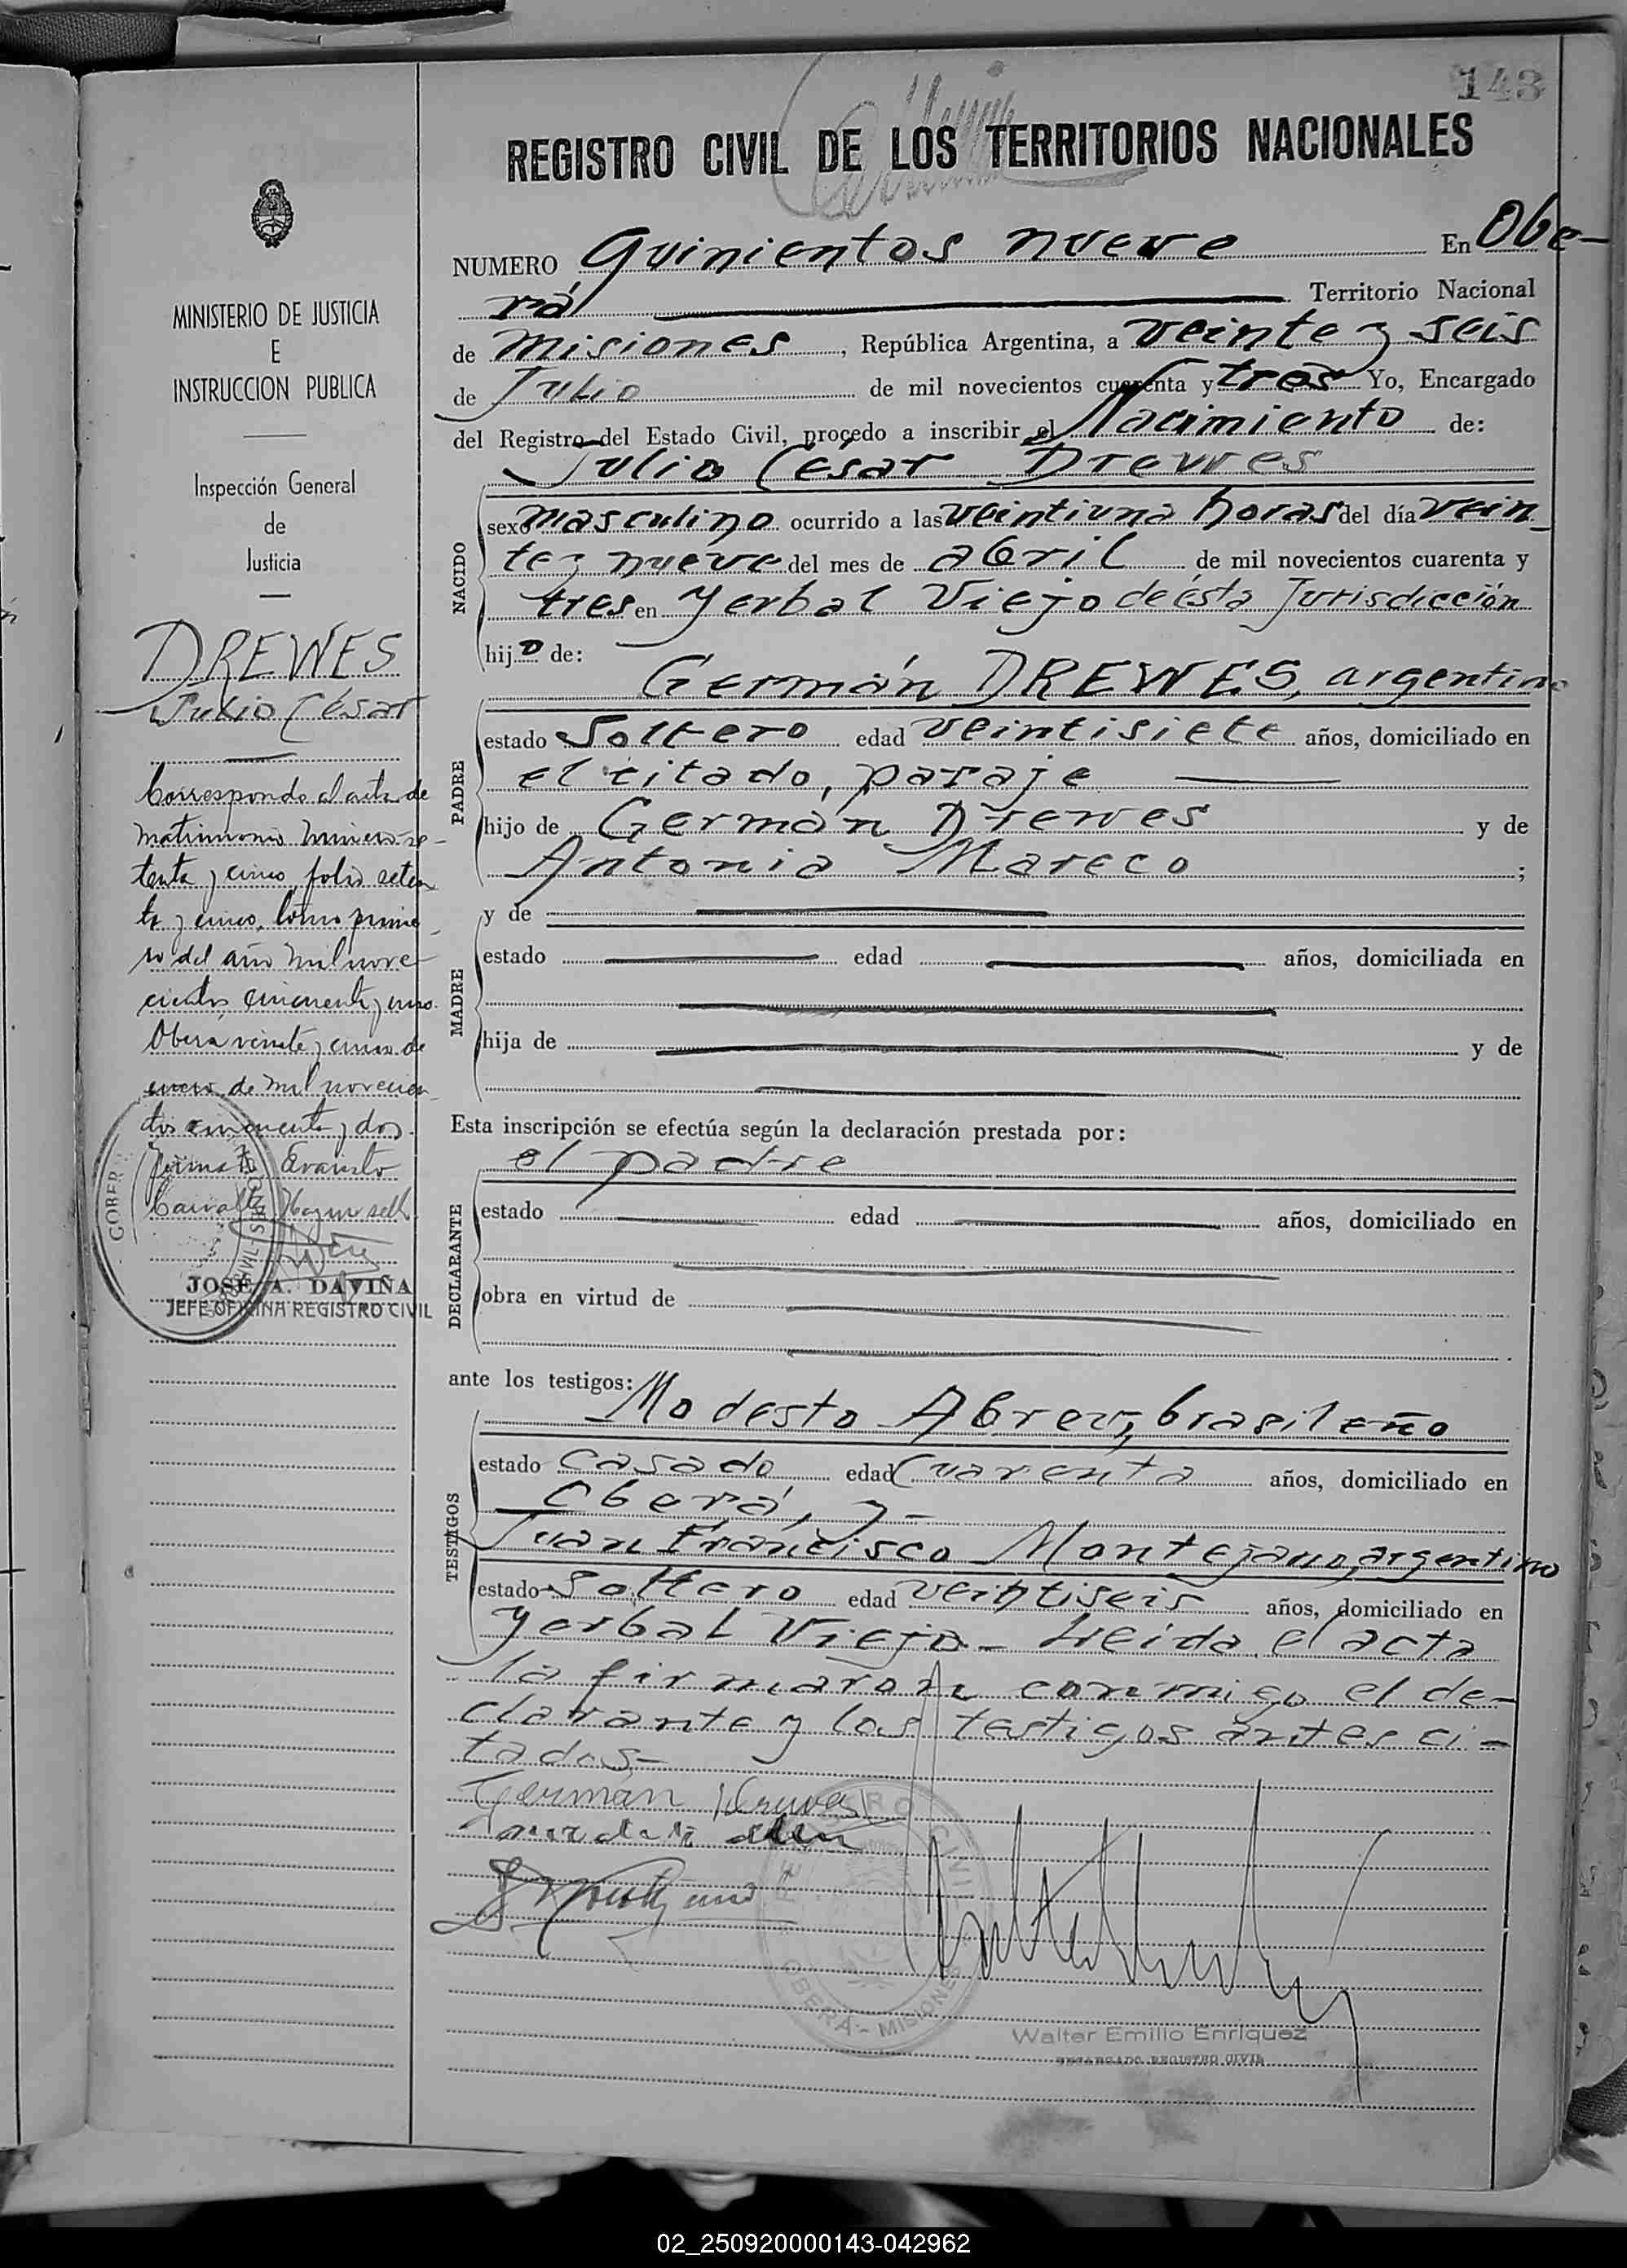 143
REGISTRO CIVIL DE LOS TERRITORIOS NACIONALES
NUMERO Quinientos nueve En Obe-
rá Territorio Nacional
de Misiones, República Argentina, a veinte y seis
de Julio de mil novecientos cuarenta y tres Yo, Encargado
del Registro del Estado Civil, procedo a inscribir el Nacimiento de:
Julio César Drewes
NACIDO
sexo masculino ocurrido a las veintiuna horas del día vein
te y nueve del mes de abril de mil novecientos cuarenta y
tres en Yerbal Viejo de ésta Jurisdicción
hijo de:
Germán DREWES, argentino
PADRE
estado Soltero edad veintisiete años, domiciliado en
el citado, paraje
hijo de Germán Drewes y de
Antonia Mareco ;
y de
MADRE
estado edad años, domiciliada en
hija de y de
Esta inscripción se efectúa según la declaración prestada por:
el padre
DECLARANTE
estado edad años, domiciliado en
obra en virtud de
ante los testigos:
Modesto Abreu, brasileño
TESTIGOS
estado casado edad Cuarenta años, domiciliado en
Oberá, y-
Juan Francisco Montejano, argentino
estado Soltero edad veintiseis años, domiciliado en
Yerbal Viejo- Leida el acta
la firmaron conmigo el de-
clarante y los testigos antes ci-
tados-
Germán Drewes
REGISTRO CIVIL
OBERÁ - MISIONES
Walter Emilio Enriquez
ENCARGADO REGISTRO CIVIL
MINISTERIO DE JUSTICIA
E
INSTRUCCION PUBLICA
Inspección General
de
Justicia
DREWES
Julio César
Corresponde al acta de
matrimonio número se-
tenta y cinco, folio seten
ta y cinco, tomo prime-
ro del año mil nove-
cientos cincuenta y uno.
Oberá veinte y cinco de
enero de mil novecien-
tos cincuenta y dos.
Evaristo
JOSÉ A. DAVIÑA
JEFE OFICINA REGISTRO CIVIL
02_250920000143-042962